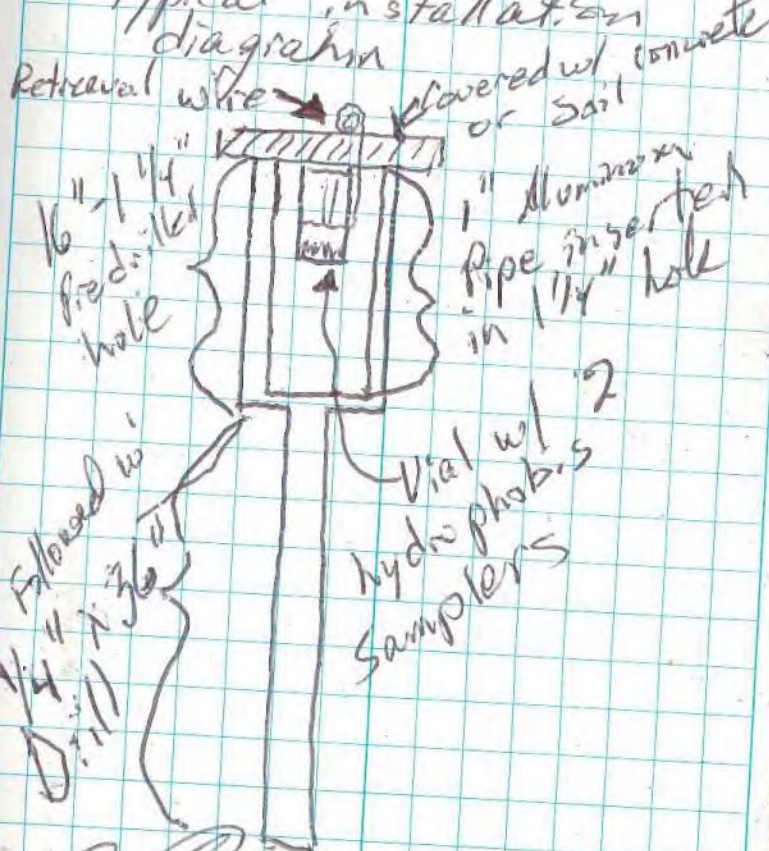 Typical installation
diagram
Retrieval wire
Covered w/ concrete
or Soil
16"-1 1/4"
Predrilled
hole
1" Aluminum
Pipe inserted
in 1 1/4" hole
Vial w/ 2
hydrophobis
Samplers
Followed w/
1/4" x 36"
Drill